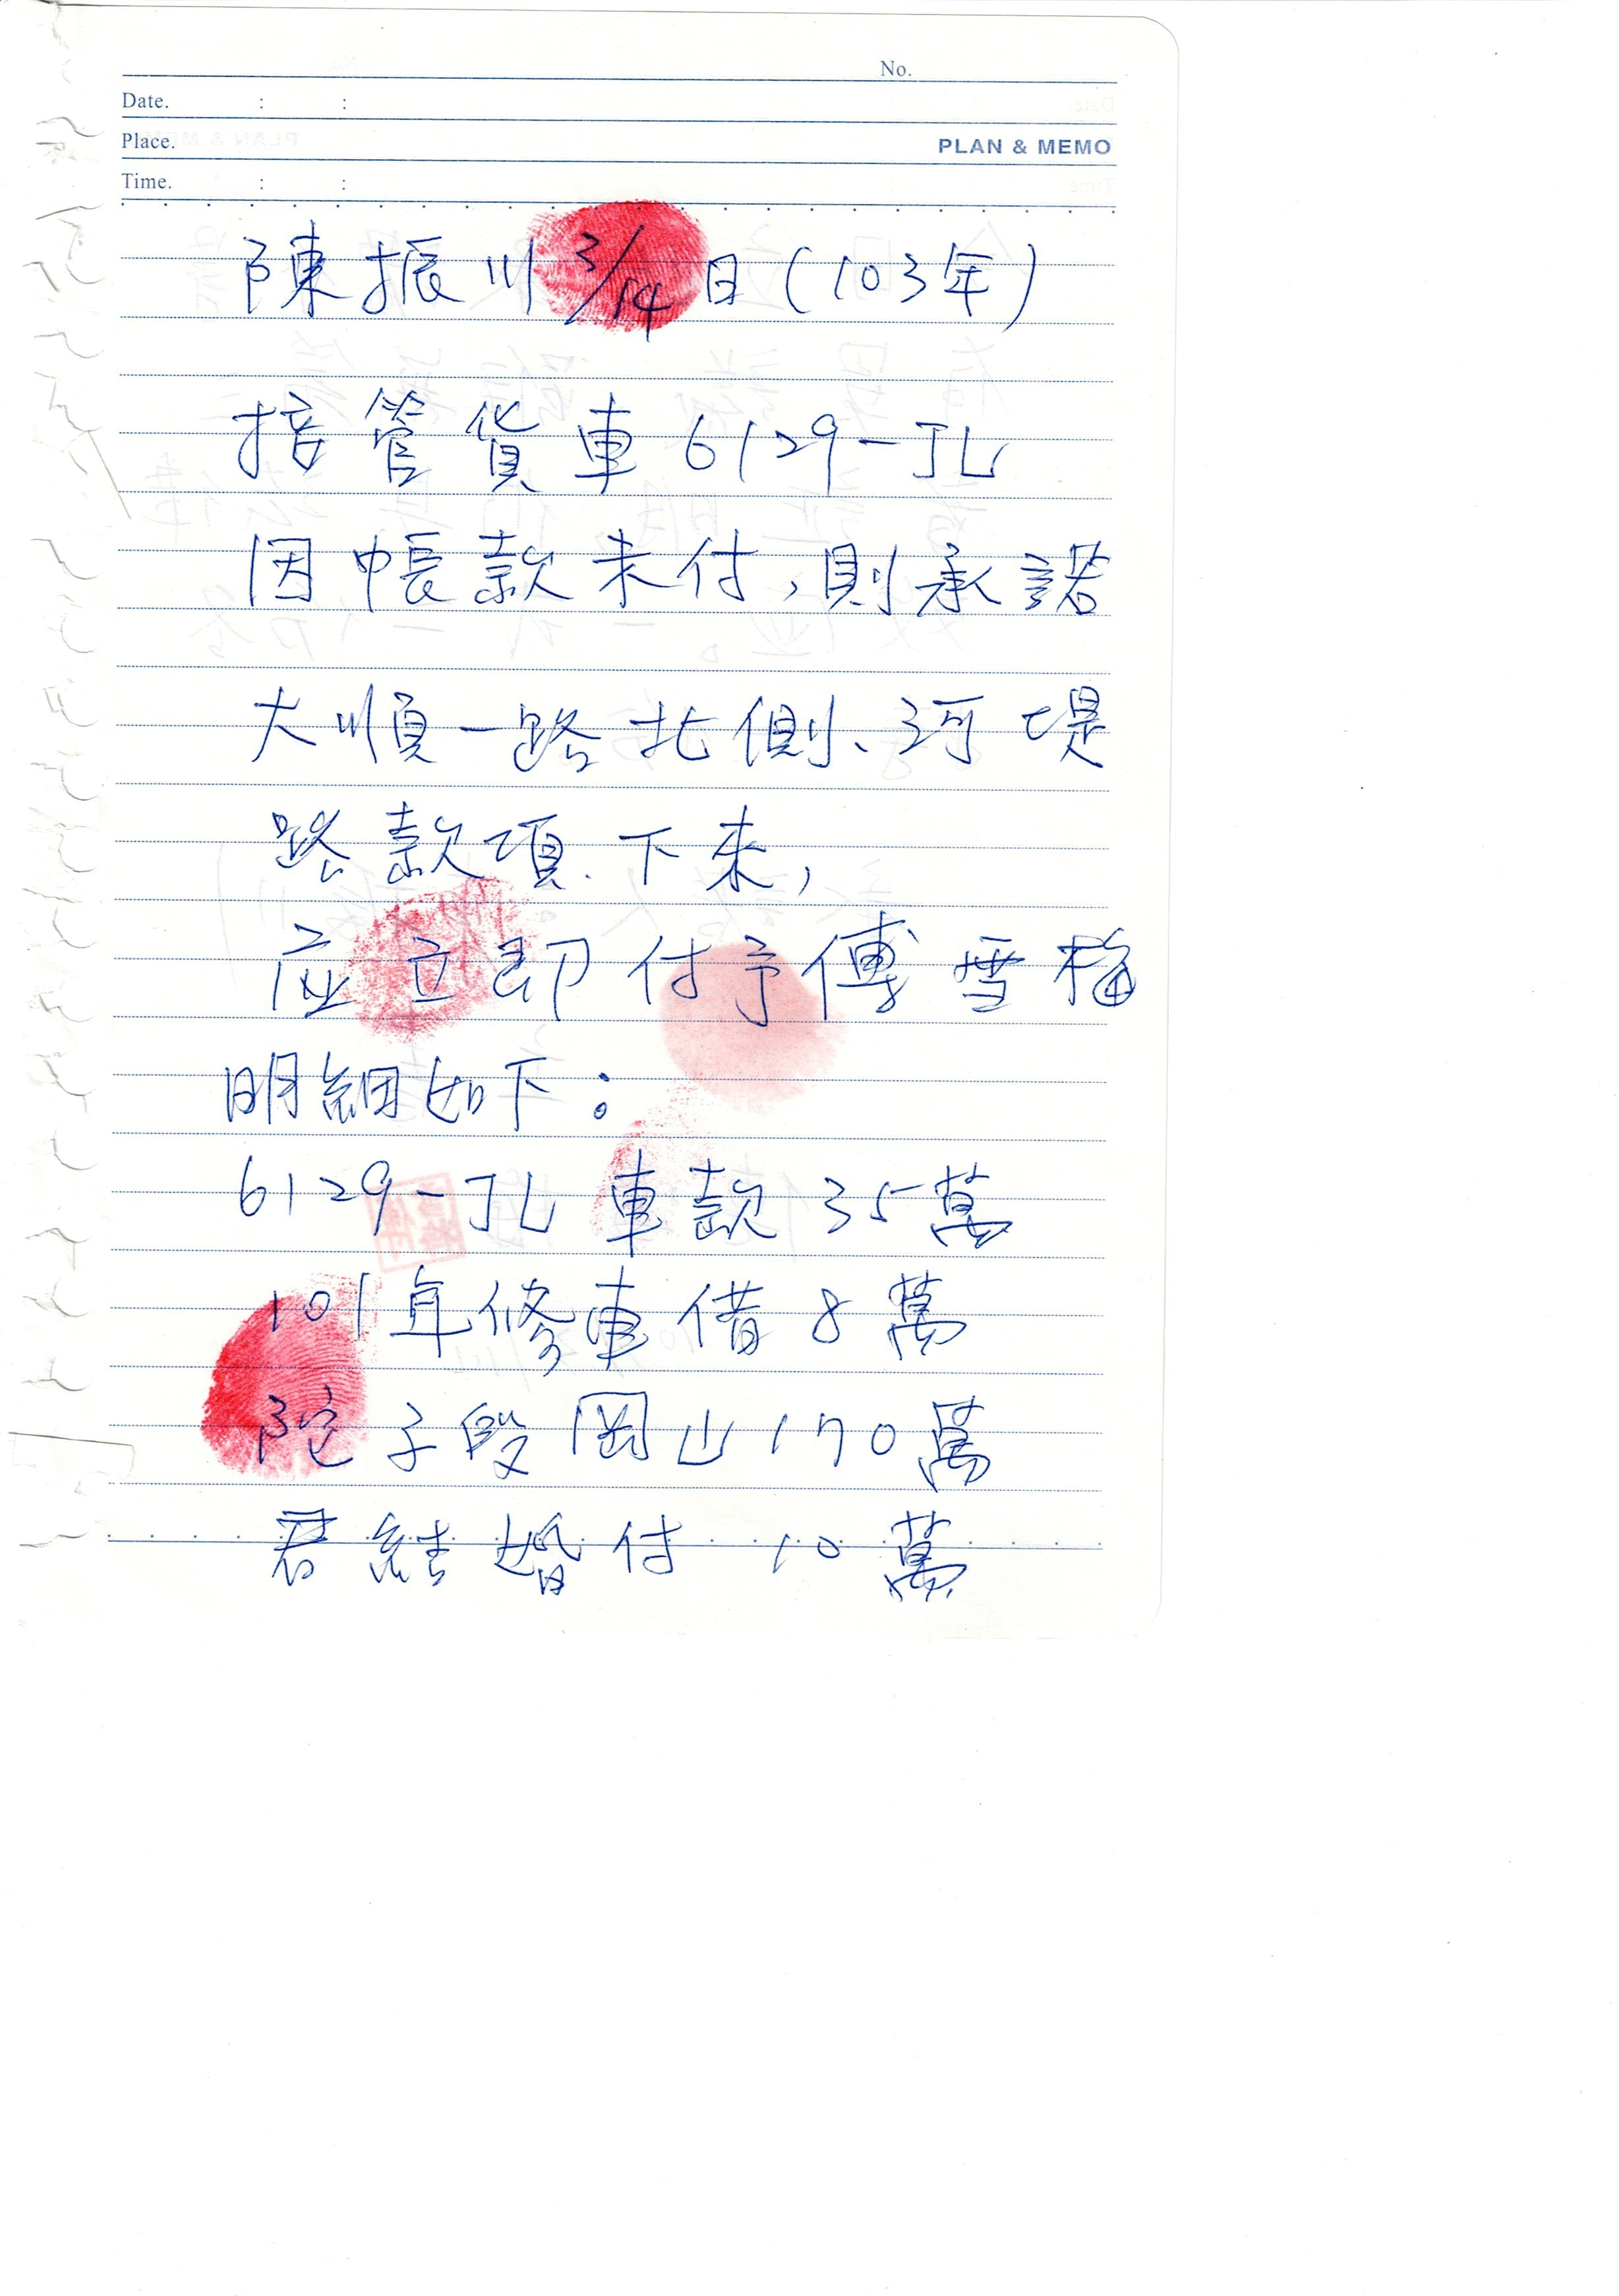 No.
Date. : :
Place. PLAN & MEMO
Time. : :
陳振川 3/14日(103年)
接管貨車6129-JL
因帳款未付,則承諾
大順一路北側、河堤
路款項、下來,
应立即付予傅雪梅
明細如下:
6129-JL車款35萬
101年修車借8萬
陀子段岡山170萬
君結婚付10萬